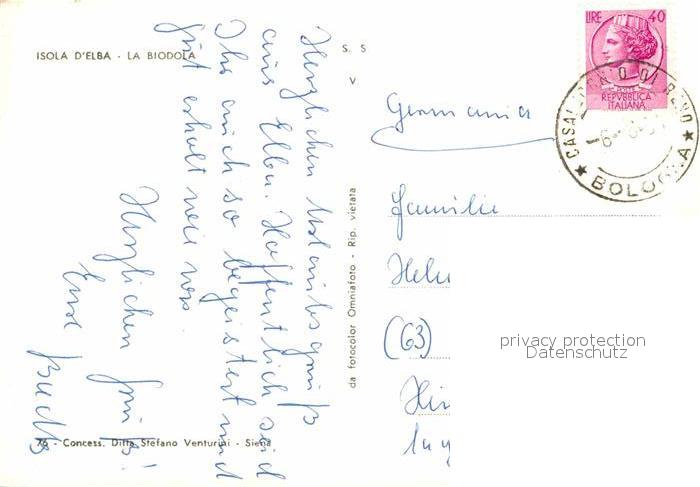 ISOLA D'ELBA - LA BIODOLA
S. S
V
Herzlichen Urlaubsgruß
aus Elba. Hoffentlich seid
Ihr auch so begeistert und
gut erholt wie wir.
Herzlichen Gruß!
Eure
da fotocolor Omniafoto - Rip. vietata
76 - Concess. Ditta Stefano Venturini - Siena
LIRE 40
REPVBBLICA
ITALIANA
BOLOGNA
Germania
Familie
(63)
privacy protection
Datenschutz